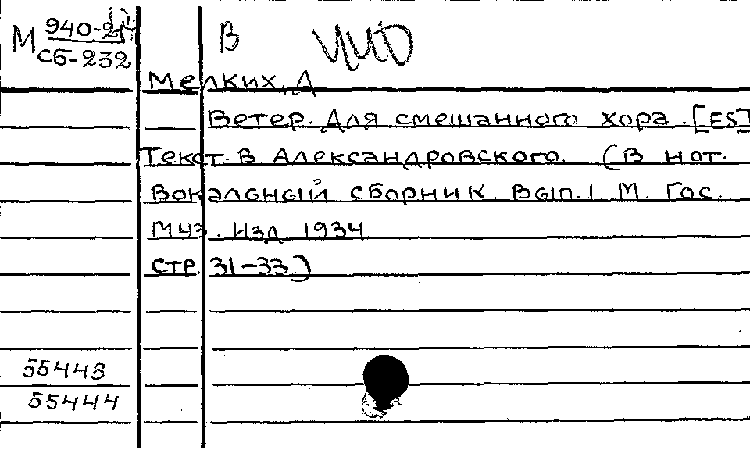 М 940-2 В
сб-232
Мелких, Д
Ветер. Для смешанного хора. [ES]
Текст. В Александровского. (В нот.
Вокальный сборник Вып.1 М. Гос.
Муз. Изд 1934
стр 31-33)
55443
55444